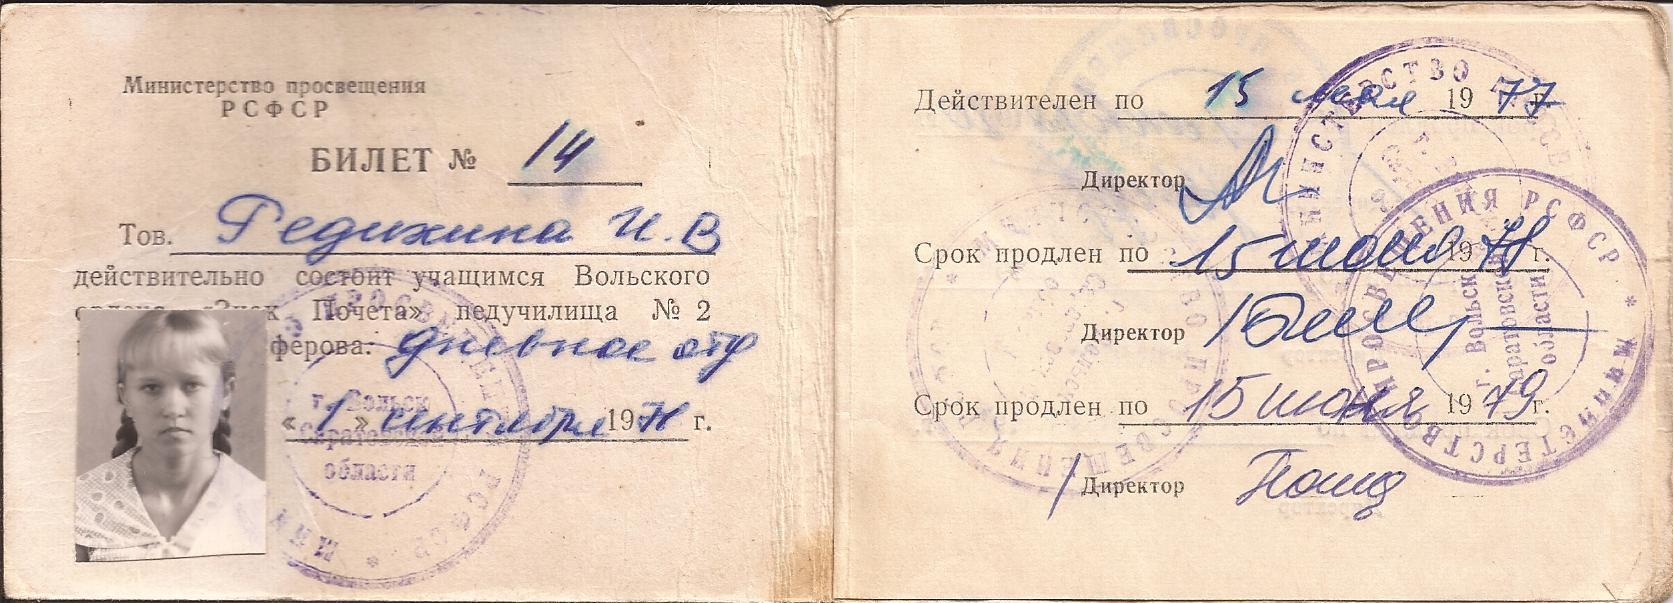 Министерство просвещения
РСФСР
БИЛЕТ № 14
Тов. Редихина И. В
действительно состоит учащимся Вольского
ордена «Знак Почета» педучилища № 2
ферова: дневное отд
«1» сентября 197 г.
г. Вольск
Саратовской
области
Действителен по 15 мая 1977 г.
Директор
Срок продлен по 15 июня 1978 г.
Директор
Срок продлен по 15 июня 1979 г.
Директор
МИНИСТЕРСТВО ПРОСВЕЩЕНИЯ РСФСР
г. Вольск
Саратовской
области